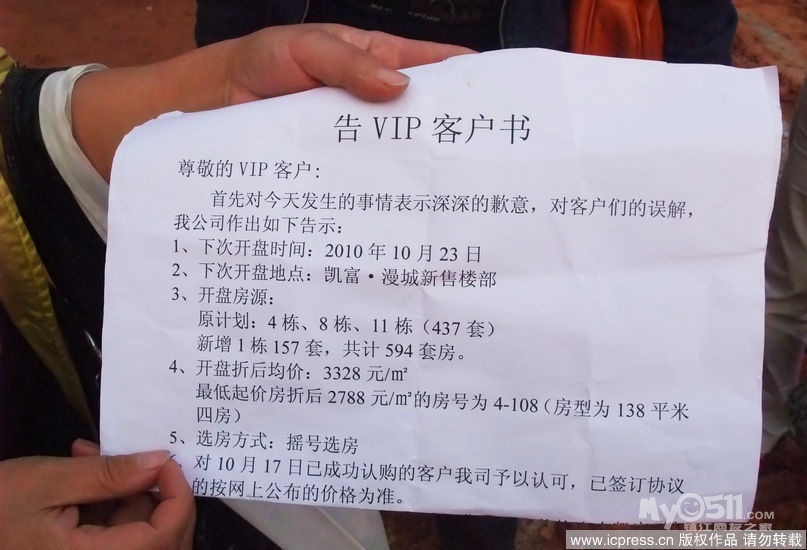 告 VIP 客户书
尊敬的 VIP 客户:
首先对今天发生的事情表示深深的歉意，对客户们的误解，
我公司作出如下告示：
1、下次开盘时间：2010 年 10 月 23 日
2、下次开盘地点：凯富·漫城新售楼部
3、开盘房源：
原计划：4 栋、8 栋、11 栋（437 套）
新增 1 栋 157 套，共计 594 套房。
4、开盘折后均价：3328 元/㎡
最低起价房折后 2788 元/㎡的房号为 4-108（房型为 138 平米
四房）
5、选房方式：摇号选房
、对 10 月 17 日已成功认购的客户我司予以认可，已签订协议
的按网上公布的价格为准。
My0511.com
镇江网友之家
www.icpress.cn 版权作品 请勿转载